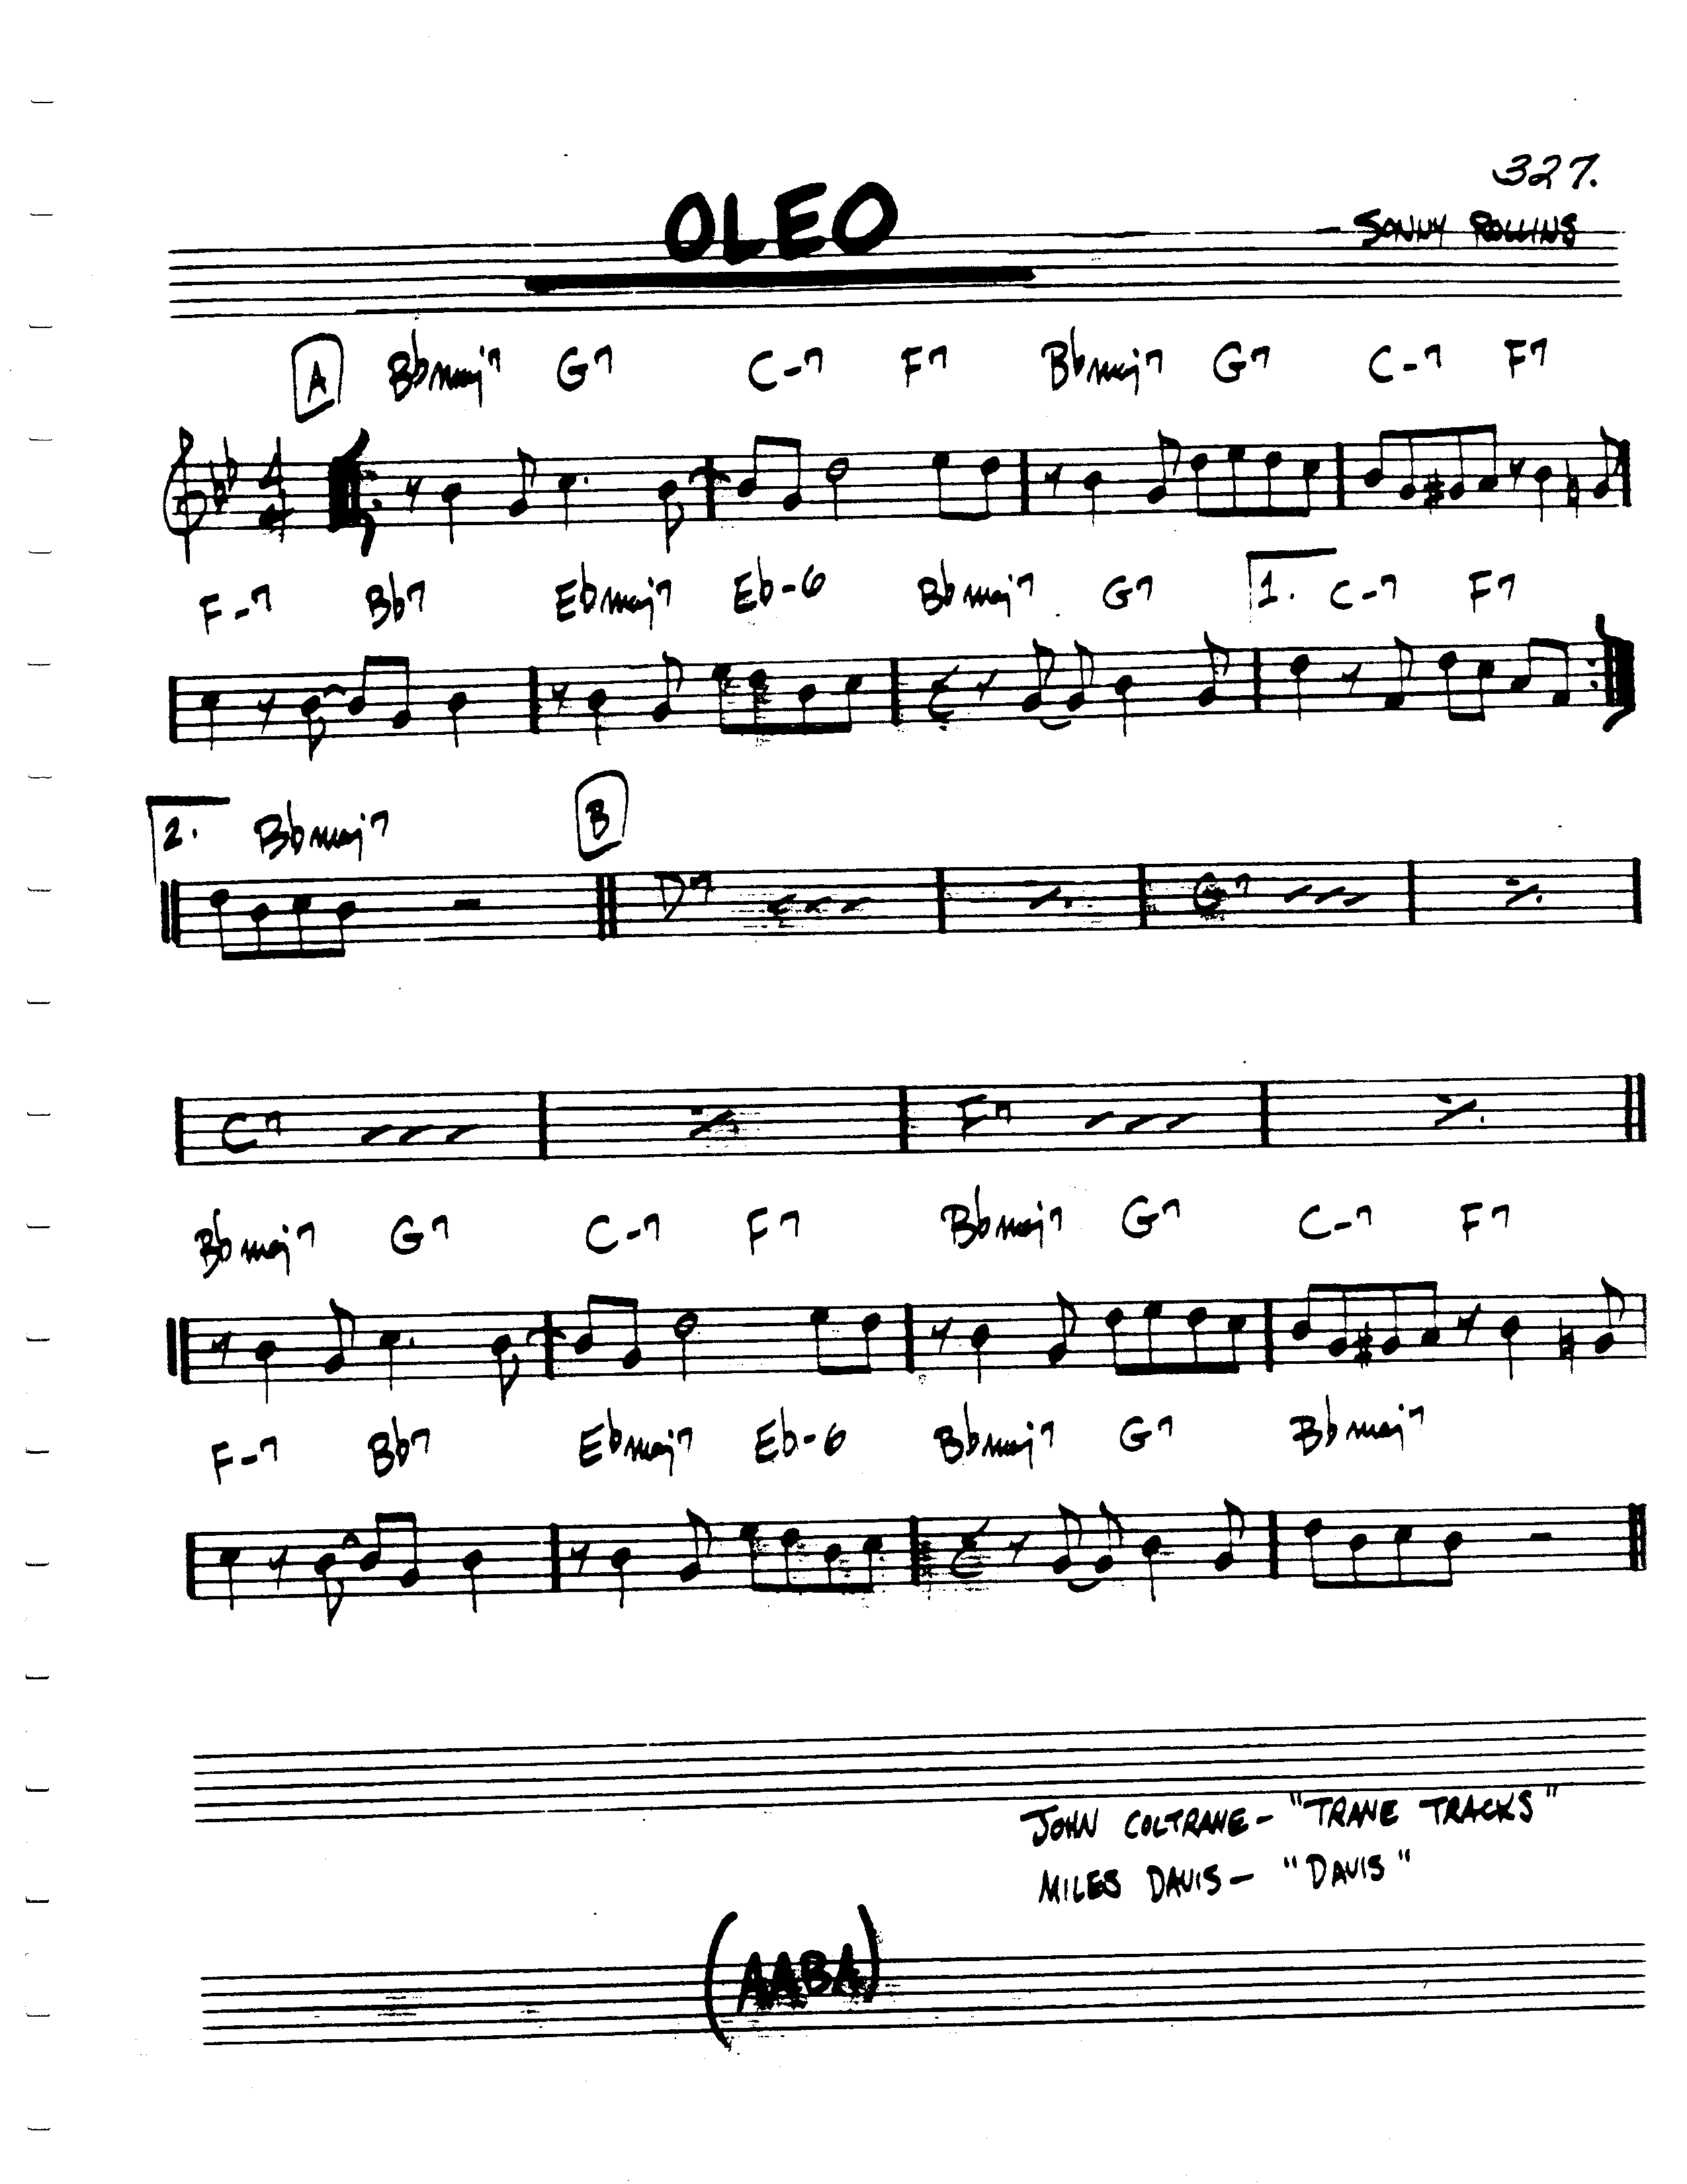 327.
OLEO
- SONNY ROLLINS
A Bbmaj7 G7 C-7 F7 Bbmaj7 G7 C-7 F7
4
4
F-7 Bb7 Ebmaj7 Eb-6 Bbmaj7 G7 1. C-7 F7
2. Bbmaj7 B
D7 G7
C7 F7
Bbmaj7 G7 C-7 F7 Bbmaj7 G7 C-7 F7
F-7 Bb7 Ebmaj7 Eb-6 Bbmaj7 G7 Bbmaj7
JOHN COLTRANE - "TRANE TRACKS"
MILES DAVIS - "DAVIS"
(AABA)